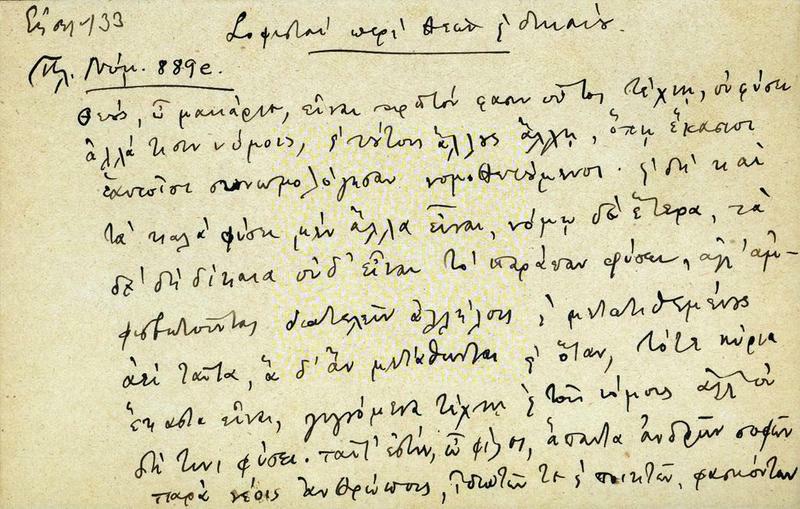 33
Σοφισταί περί θεών ϗ δικαίου.
Πλ. Νόμ. 889e.
θεούς, ὦ μακάριε, εἶναι πρῶτόν φασιν οὗτοι τέχνῃ, οὐ φύσει
ἀλλά τισιν νόμοις, ϗ τούτους ἄλλους ἄλλῃ, ὅπῃ ἕκαστοι
ἑαυτοῖσι συνωμολόγησαν νομοθετούμενοι· ϗ δὴ καὶ
τὰ καλὰ φύσει μὲν ἄλλα εἶναι, νόμῳ δὲ ἕτερα, τὰ
δὲ δὴ δίκαια οὐδ' εἶναι τὸ παράπαν φύσει, ἀλλ' ἀμ-
φισβητοῦντας διατελεῖν ἀλλήλοις ϗ μετατιθεμένους
ἀεὶ ταῦτα, ἃ δ' ἂν μετάθωνται ϗ ὅταν, τότε κύρια
ἕκαστα εἶναι, γιγνόμενα τέχνῃ ϗ τοῖς νόμοις ἀλλ' οὐ
δή τινι φύσει. ταῦτ' ἐστίν, ὦ φίλοι, ἅπαντα ἀνδρῶν σοφῶν
παρὰ νέοις ἀνθρώποις, ἰδιωτῶν τε ϗ ποιητῶν, φασκόντων